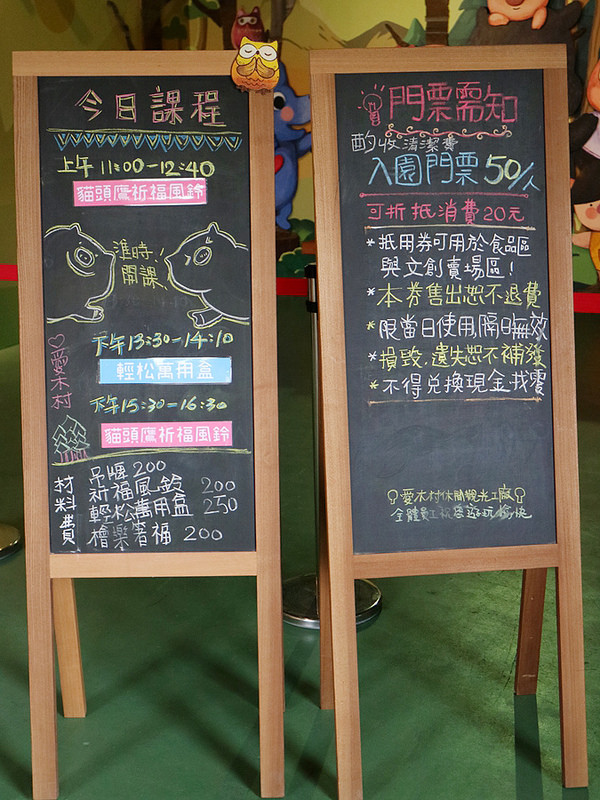 今日課程
上午 11:00-12:40
貓頭鷹祈福風鈴
準時!
開課!
下午 13:30-14:10
輕松萬用盒
下午 15:30-16:30
貓頭鷹祈福風鈴
愛木村
材料費
吊牌 200
祈福風鈴 200
輕松萬用盒 250
檜樂箸福 200
門票需知
酌收清潔費
入園門票 50/人
可折抵消費20元
*抵用券可用於食品區
與文創賣場區!
*本券售出恕不退費
*限當日使用,隔日無效
*損毀.遺失恕不補發
*不得兌換現金.找零
愛木村休閒觀光工廠
全體員工祝您遊玩愉快